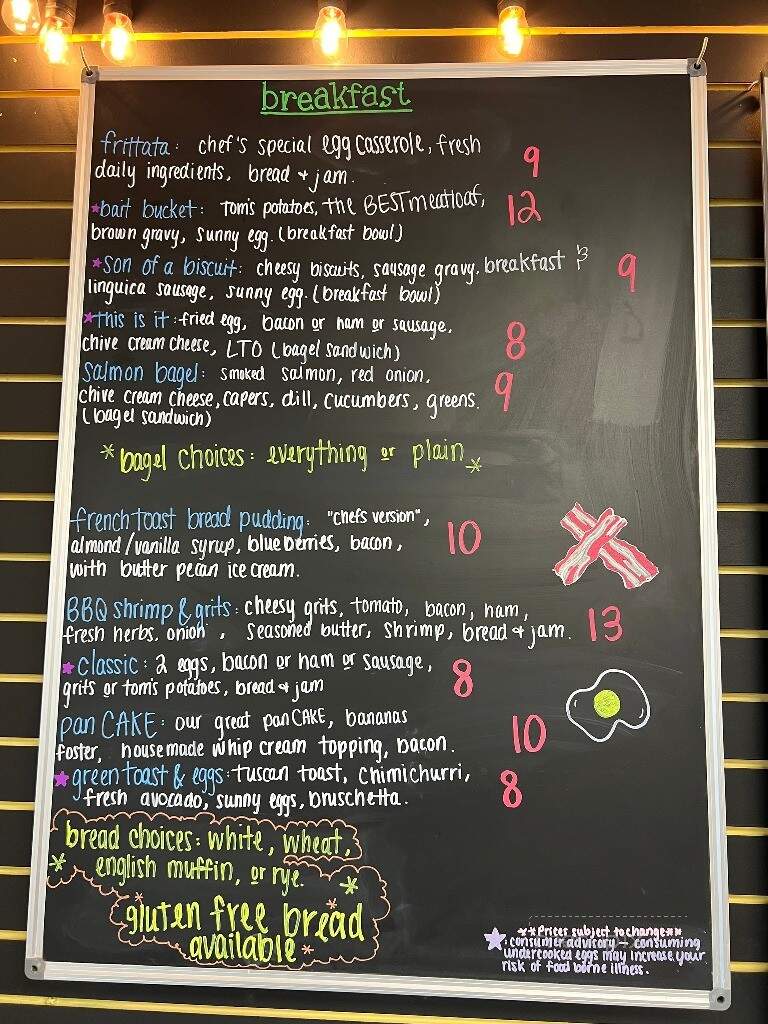 breakfast
frittata: chef's special egg casserole, fresh
daily ingredients, bread + jam. 9
*bait bucket: Tom's potatoes, The BEST meatloaf, 12
brown gravy, sunny egg. (breakfast bowl)
*son of a biscuit: cheesy biscuits, sausage gravy, breakfast 9
linguica sausage, sunny egg. (breakfast bowl)
*this is it: fried egg, bacon or ham or sausage,
chive cream cheese, LTO (bagel sandwich) 8
salmon bagel: smoked salmon, red onion,
chive cream cheese, capers, dill, cucumbers, greens. 9
(bagel sandwich)
*bagel choices: everything or plain*
french toast bread pudding: "chefs version",
almond/vanilla syrup, blueberries, bacon, 10
with butter pecan ice cream.
BBQ shrimp & grits: cheesy grits, tomato, bacon, ham,
fresh herbs, onion, seasoned butter, shrimp, bread + jam. 13
*classic: 2 eggs, bacon or ham or sausage, 8
grits or tom's potatoes, bread + jam
pan CAKE: our great pan CAKE, bananas
foster, housemade whip cream topping, bacon. 10
*green toast & eggs: tuscan toast, chimichurri,
fresh avocado, sunny eggs, bruschetta. 8
bread choices: white, wheat,
*english muffin, or rye.*
*gluten free bread
available*
**Prices subject to change**
*: consumer advisory - consuming
undercooked eggs may increase your
risk of food borne illness.